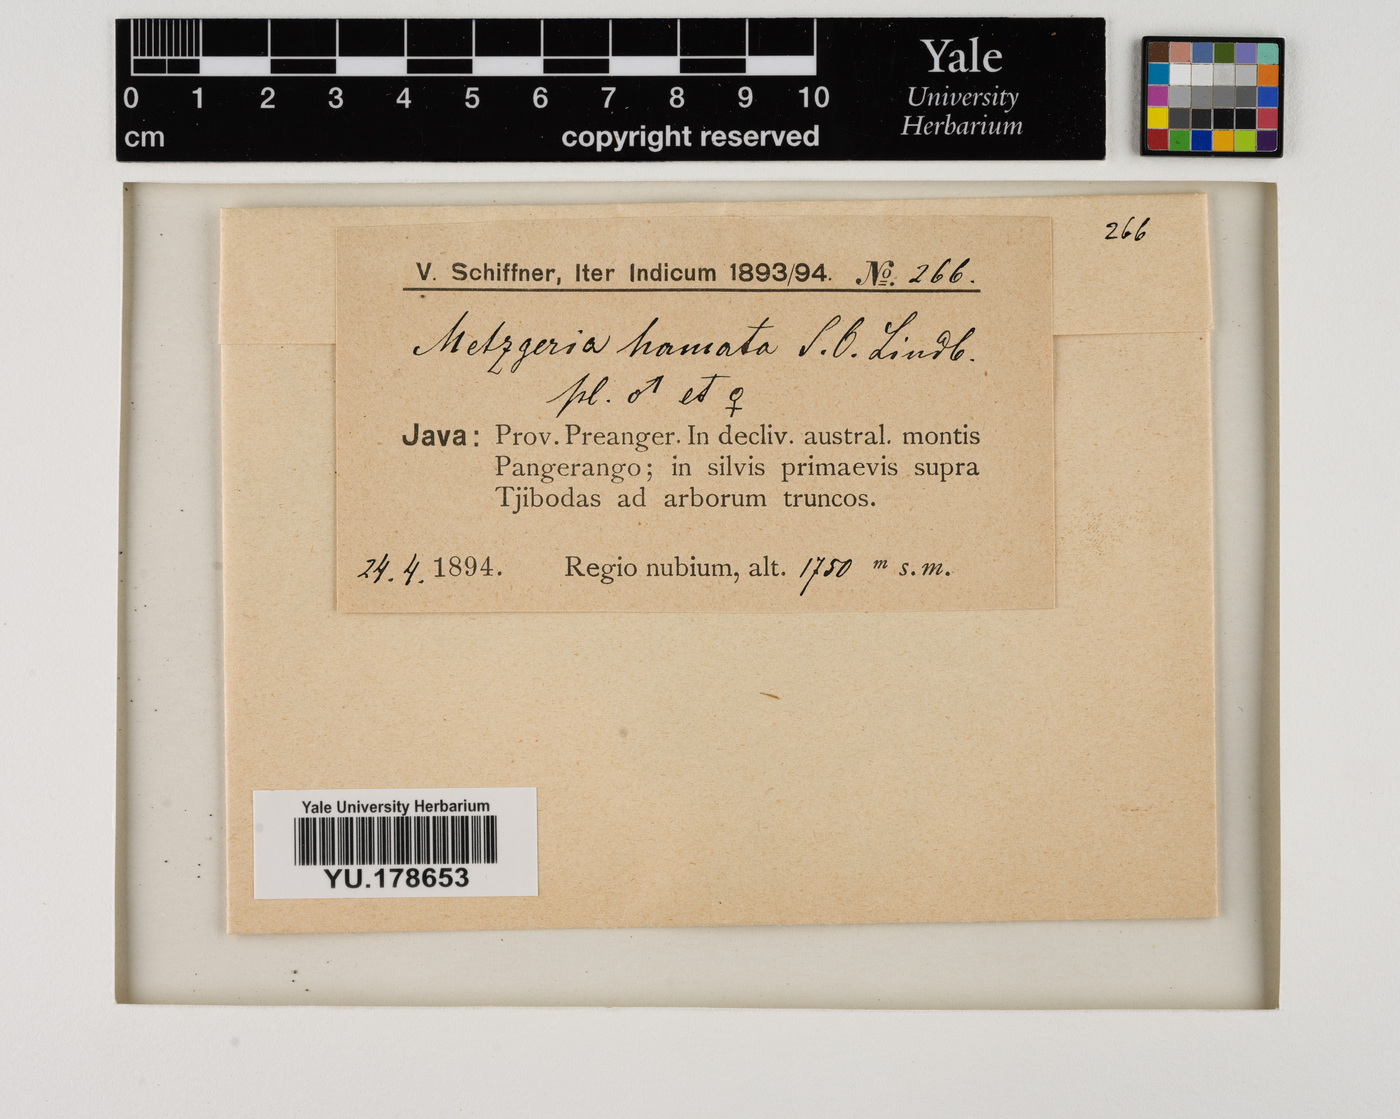 0 1 2 3 4 5 6 7 8 9 10
cm
copyright reserved
Yale
University
Herbarium
266
V. Schiffner, Iter Indicum 1893/94. No. 266.
Metzgeria hamata S.O. Lindb.
pl. ♂ et ♀
Java: Prov. Preanger. In decliv. austral. montis
Pangerango; in silvis primaevis supra
Tjibodas ad arborum truncos.
24.4.1894. Regio nubium, alt. 1750 m s.m.
Yale University Herbarium
YU.178653